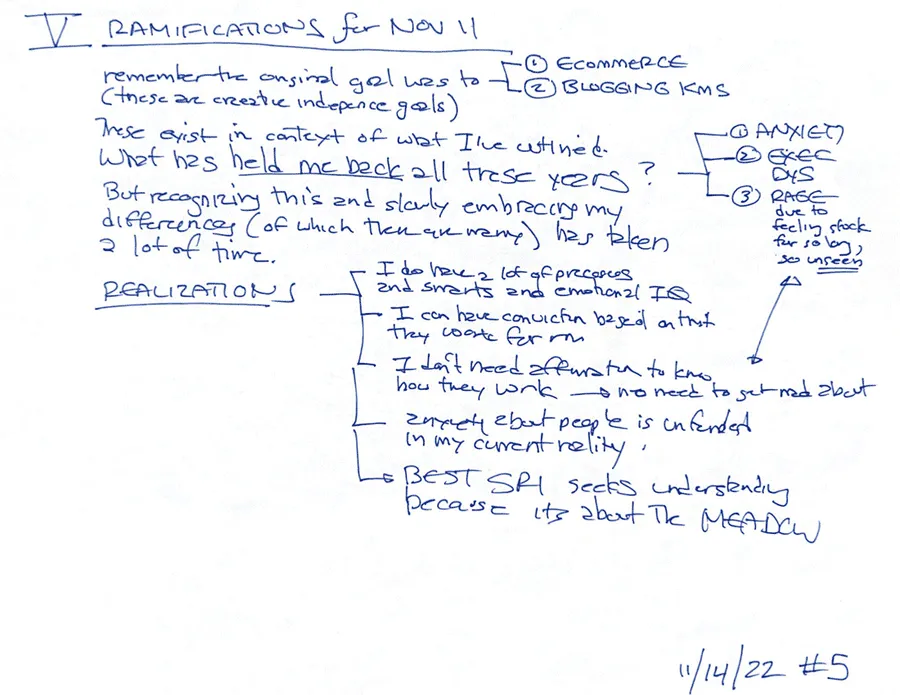 V RAMIFICATIONS for NOV 11
remember the original goal was to
① ECOMMERCE
② BLOGGING KMS
(these are creative indepence goals)
These exist in context of what I've outlined.
What has held me back all these years?
① ANXIETY
② EXEC
DYS
③ RAGE
due to
feeling stuck
for so long,
so unseen
But recognizing this and slowly embracing my
differences (of which there are many) has taken
a lot of time.
REALIZATIONS
I do have a lot of processes
and smarts and emotional IQ
I can have conviction based on trust
they work for me
I don't need affirmation to know
how they work → no need to get mad about
anxiety about people is unfounded
in my current reality.
BEST SRI seeks understanding
because its about The MEADOW
11/14/22 #5